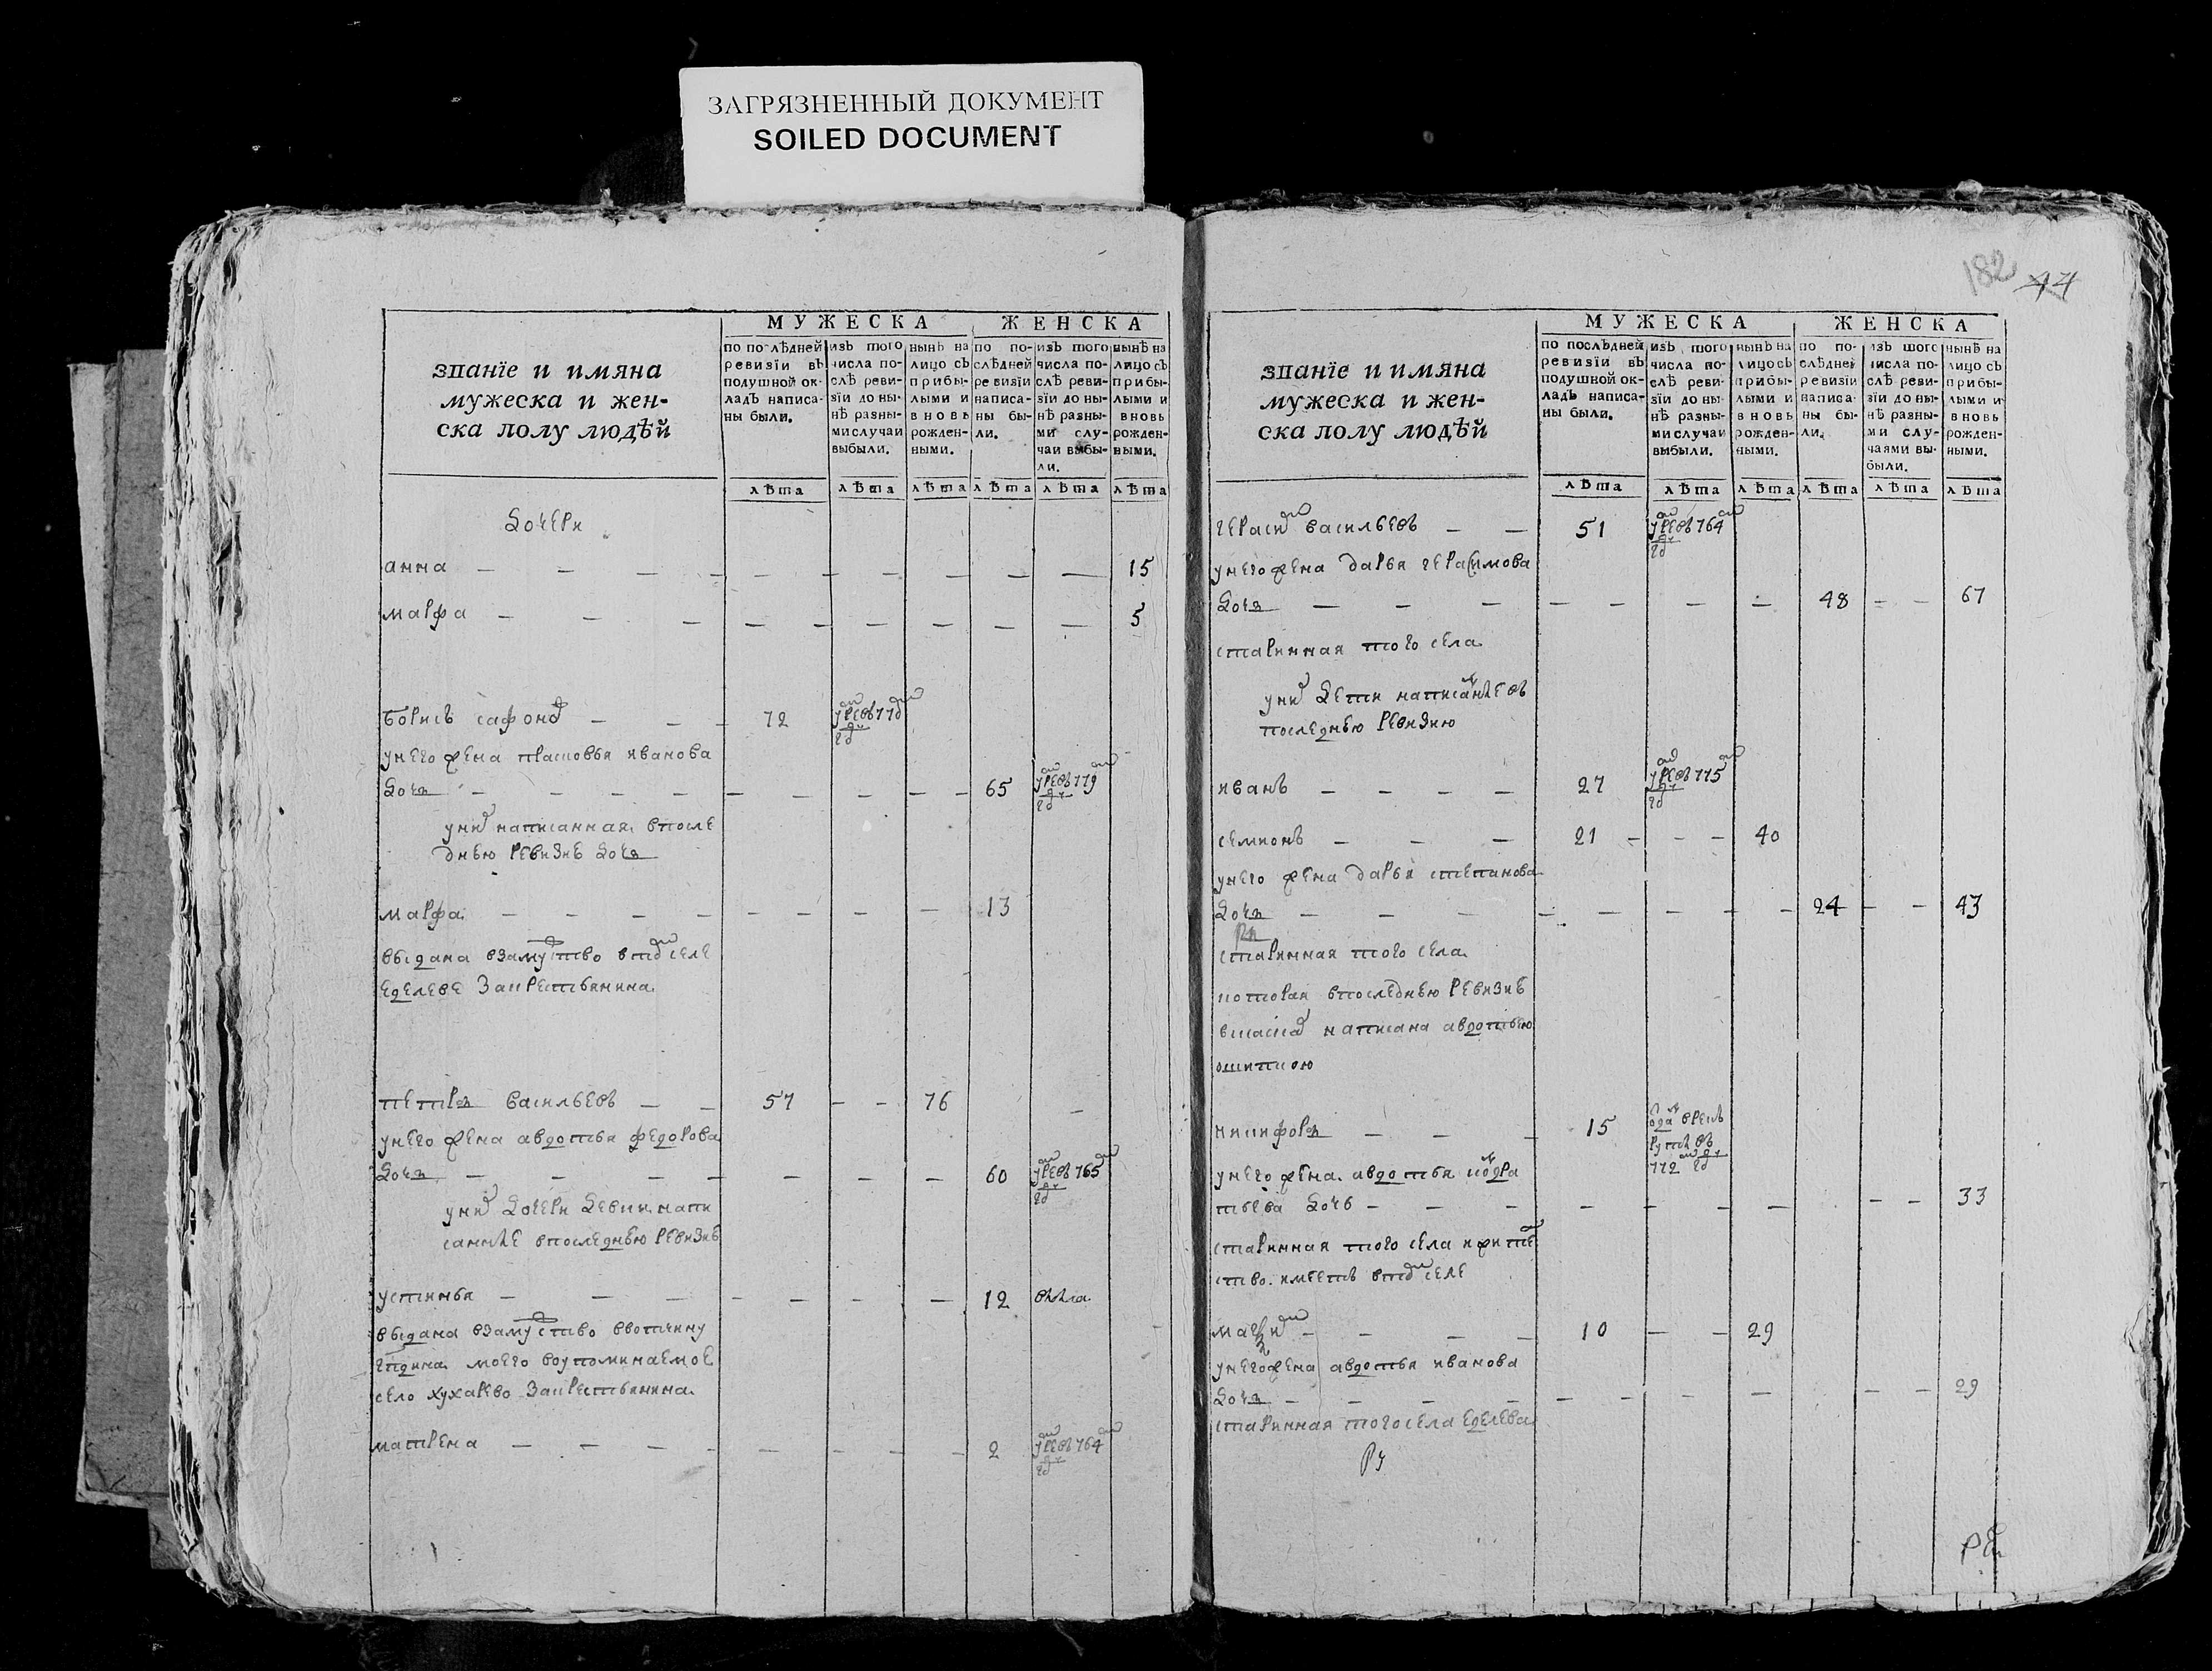 ЗАГРЯЗНЕННЫЙ ДОКУМЕНТ
SOILED DOCUMENT
званїе и имяна
мужеска и жен-
ска полу людѣй
МУЖЕСКА
ЖЕНСКА
по послѣдней
ревизїи въ
подушной ок-
ладъ написа-
ны были.
изъ того
числа по-
слѣ реви-
зїи до ны-
нѣ разны-
ми случаи
выбыли.
нынѣ на
лицо съ
прибы-
лыми и
вновь
рожден-
ными.
по по-
слѣдней
ревизїи
написа-
ны бы-
ли.
изъ того
числа по-
слѣ реви-
зїи до ны-
нѣ разны-
ми слу-
чаи выбы-
ли.
нынѣ на
лицо съ
прибы-
лыми и
вновь
рожден-
ными.
лѣта лѣта лѣта лѣта лѣта лѣта
дочери
анна — — — — — — — — — — 15
марфа — — — — — — — — — 5
борисъ сафонов — — — 72 умре в 770 году
у него жена прасковья иванова
дочь — — — — — — — — — 65 умре в 779 году
у них написанная в после
днею ревизиѣ дочь
марфа — — — — — — — — 13
выдана в замуство в том селе
еделеве за крестьянина
петръ васильевъ — — 57 — — 76
у него жена авдотья федорова
дочь — — — — — — — 60 умре в 765 году
у них дочери девки напи
санные в последнею ревизиѣ
устинья — — — — — — — 12
выдана в замуство в вотчину
гпдина моего в оупоминаемое
село хухарево за крестьянина
матрена — — — — — — — — 2 умре в 764 году
182 44
званїе и имяна
мужеска и жен-
ска полу людѣй
МУЖЕСКА
ЖЕНСКА
по послѣдней
ревизїи въ
подушной ок-
ладъ написа-
ны были.
изъ того
числа по-
слѣ реви-
зїи до ны-
нѣ разны-
ми случаи
выбыли.
нынѣ на
лицо съ
прибы-
лыми и
вновь
рожден-
ными.
по по-
слѣдней
ревизїи
написа-
ны бы-
ли.
изъ того
числа по-
слѣ реви-
зїи до ны-
нѣ разны-
ми слу-
чаями вы-
были.
нынѣ на
лицо съ
прибы-
лыми и
вновь
рожден-
ными.
лѣта лѣта лѣта лѣта лѣта лѣта
герасим васильевъ — — 51 умре в 764 году
у него жена дарья герасимова
дочь — — — — — — — 48 — — 67
старинная того села
у них дети написанные въ
последнею ревизию
иванъ — — — — 27 умре в 775 году
семионъ — — — 21 — — — 40
у него жена дарья степанова
дочь — — — — — — — — 24 — — 43
старинная того села
которая в последнею ревизиѣ
в скаске написана авдотьею
ошипкою
никифоръ — — — 15 отдан в рекруты въ 772 году
у него жена авдотья кондра
тьева дочь — — — — — — — — — 33
старинная того села и жите
ство имеетъ в том селе
максим — — — — 10 — — 29
у него жена авдотья иванова
дочь — — — — — — — — — — 29
старинная того села еделева